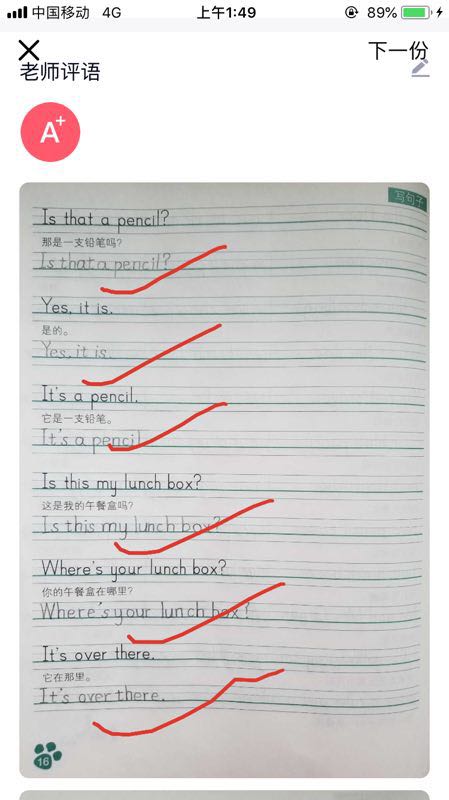 中国移动 4G 上午1:49 89%
下一份
老师评语
A+
写句子
Is that a pencil?
那是一支铅笔吗?
Is that a pencil?
Yes, it is.
是的。
Yes, it is.
It's a pencil.
它是一支铅笔。
It's a pencil
Is this my lunch box?
这是我的午餐盒吗?
Is this my lunch box?
Where's your lunch box?
你的午餐盒在哪里?
Where's your lunch box?
It's over there.
它在那里。
It's over there.
16